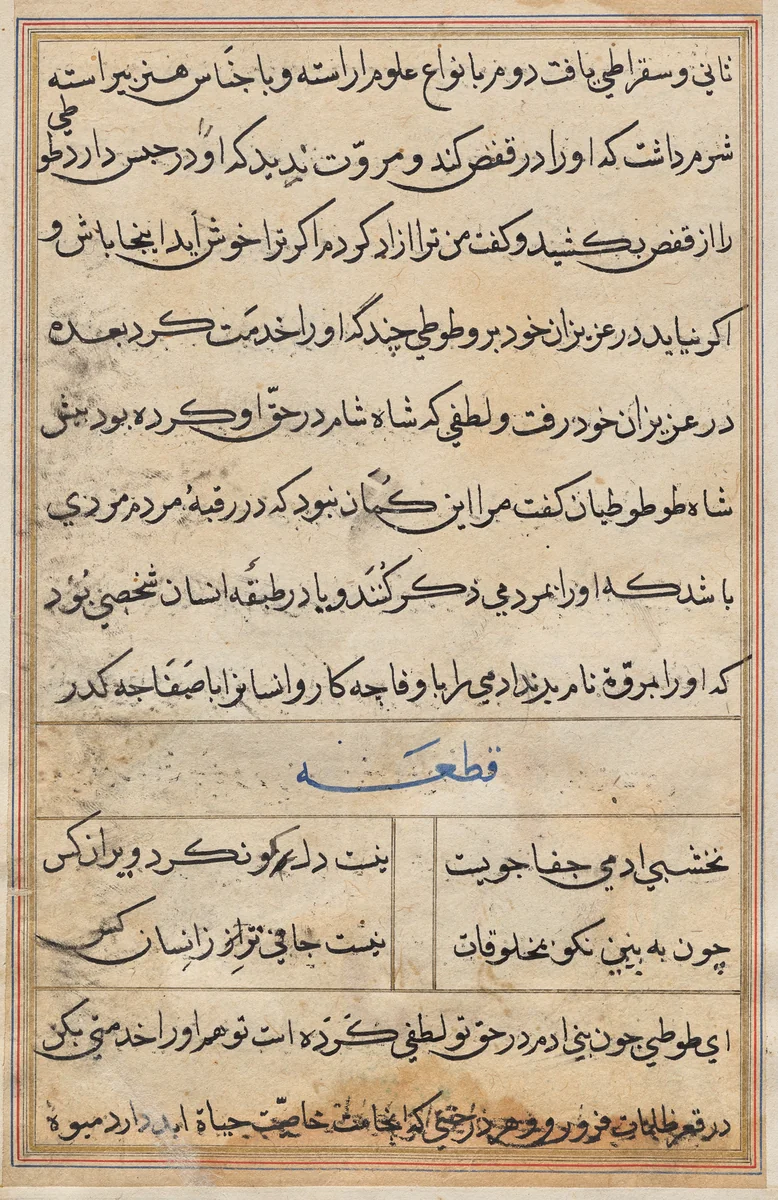 ثاني و سقراطي يافت دوم بانواع علوم اراسته و باجناس هنر پيراسته
شرم داشت كه او را در قفص كند و مروّت نديد كه او در حبس دارد طوطي
را از قفص بكشيد و كفت من ترا ازاد كردم اكر ترا خوش آيد اينجا باش و
اكر نيايد در عزيزان خود برو طوطي چند گه او را خدمَت كرد بعده
در عزيزان خود رفت و لطفي كه شاه شام در حقّ او كرده بود بيش
شاه طوطوطيان كفت مرا اين كُمَان نبود كه در رقبهٔ مردم مردي
باشد كه او را بمردمي ذكر كُنَند و يا در طبقَه انسان شخصي بُوَد
كه او را بمروّة نام برند ادمي را با وفا چه كار و انسانرا با صَفَا چه كدر
قطعَـه
نخشبي ادمي جفا جويست
نيست دل كو نكرد ويران كس
چون به بيني نكو بمخلوقات
نيست جافي تر از انسان كس
اي طوطي چون بني ادم در حق تو لطفي كَرَده است تو هم او را خدمتي بكن
در قعر ظلمات فرو رو و هر درختي كه انجاست خاصيّت حياة ابد دارد ميوهٔ